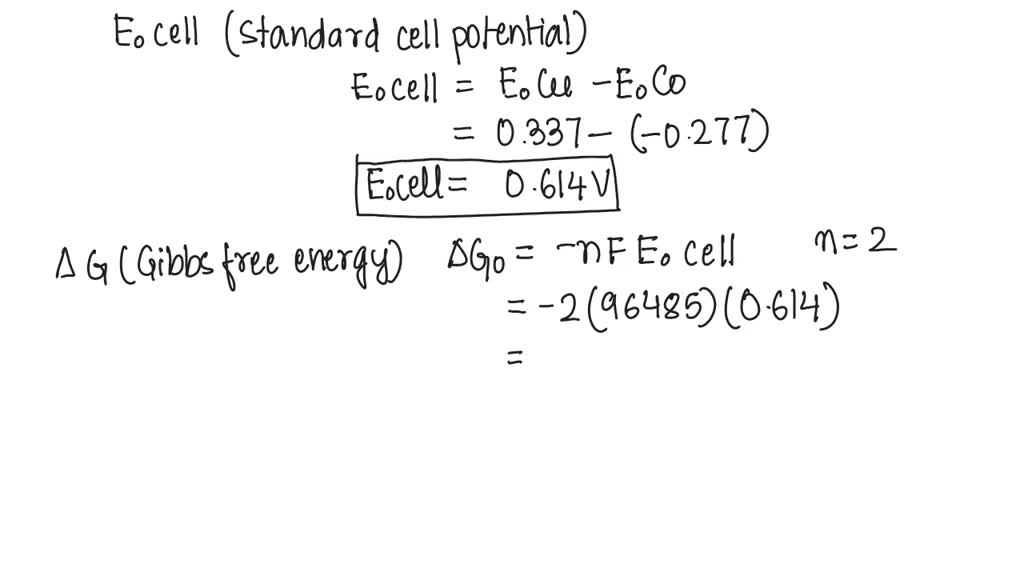 E₀ cell (standard cell potential)
E₀cell = E₀Cu − E₀Co
= 0.337 − (−0.277)
E₀cell = 0.614V
ΔG (Gibbs free energy) ΔG₀ = −nFE₀ cell n = 2
= −2(96485)(0.614)
=